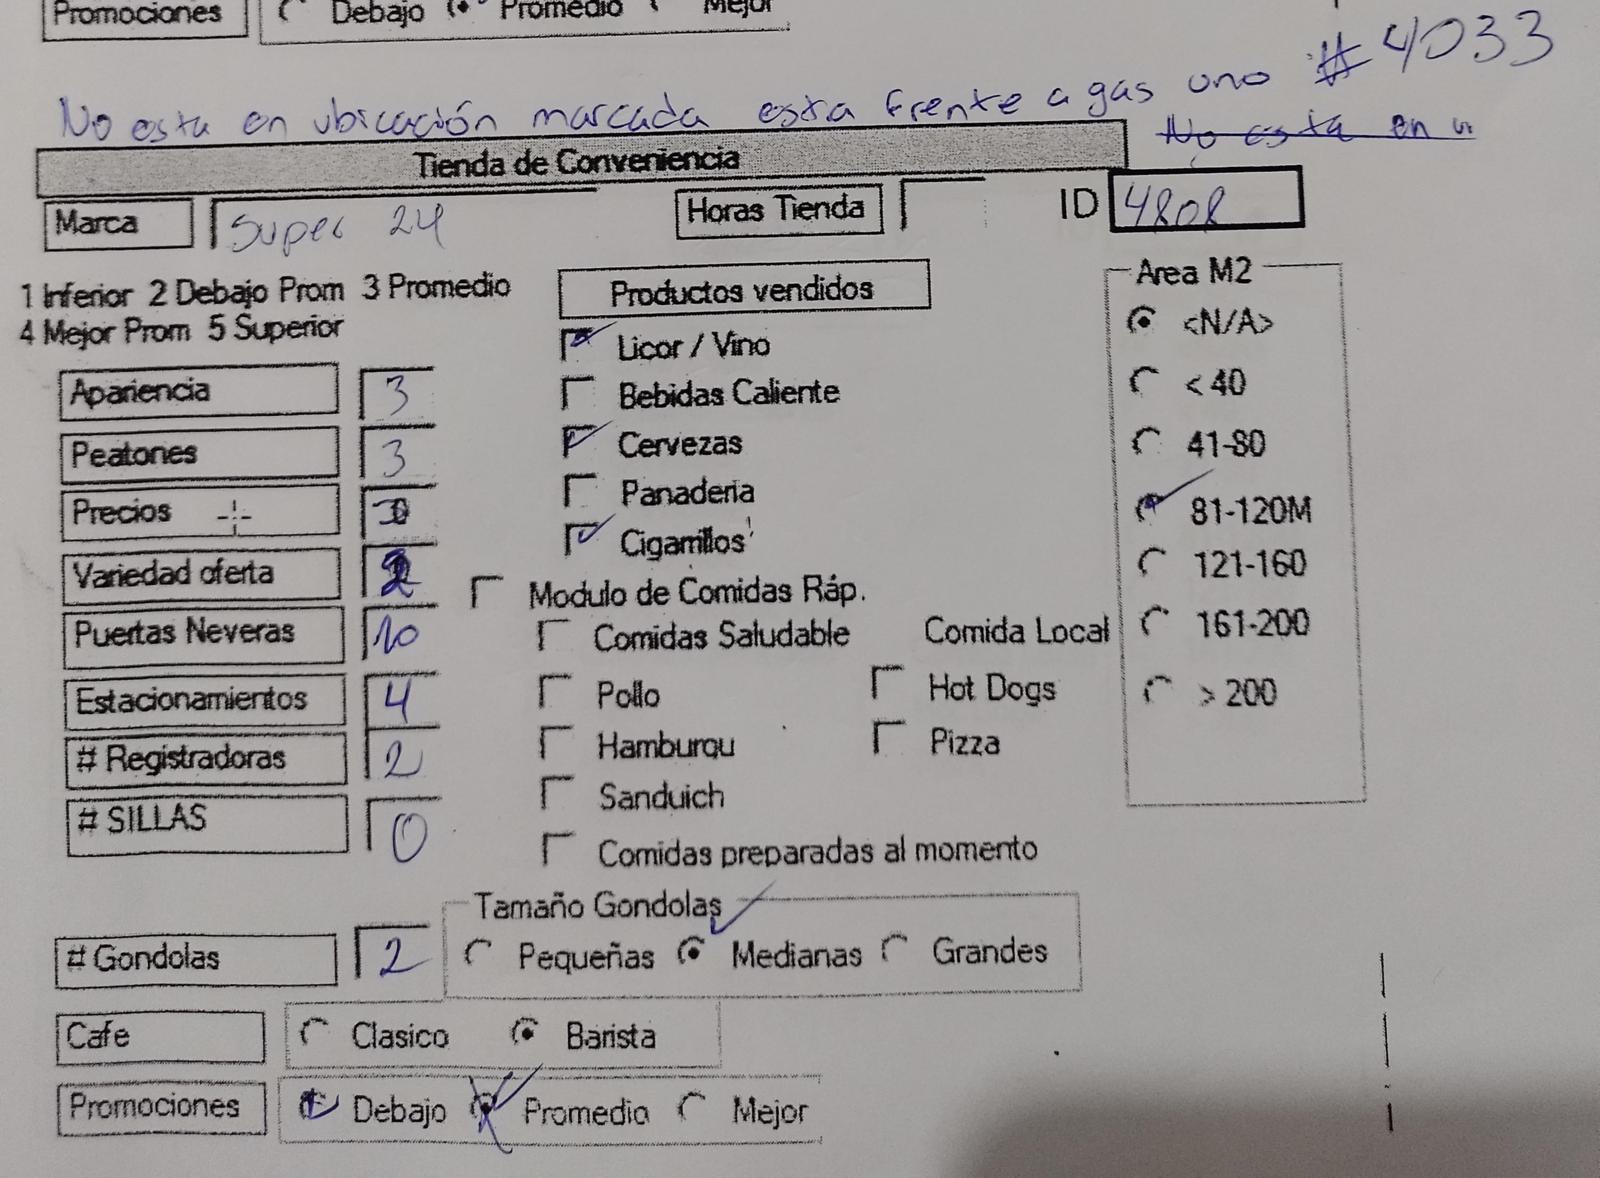 Promociones Debajo Promedio Mejor
#4033
No esta en ubicación marcada esta frente a gas uno
No esta en u
Tienda de Conveniencia
Marca Super 24 Horas Tienda ID 4808
1 Inferior 2 Debajo Prom 3 Promedio
4 Mejor Prom 5 Superior
Productos vendidos
Area M2
Licor / Vino
Bebidas Caliente
Cervezas
Panaderia
Cigarrillos
Modulo de Comidas Ráp.
Comidas Saludable Comida Local
Pollo Hot Dogs
Hamburgu Pizza
Sanduich
Comidas preparadas al momento
<N/A>
< 40
41-80
81-120M
121-160
161-200
> 200
Apariencia 3
Peatones 3
Precios
Variedad oferta
Puertas Neveras 10
Estacionamientos 4
# Registradoras 2
# SILLAS 0
Tamaño Gondolas
# Gondolas 2 Pequeñas Medianas Grandes
Cafe Clasico Barista
Promociones Debajo Promedio Mejor